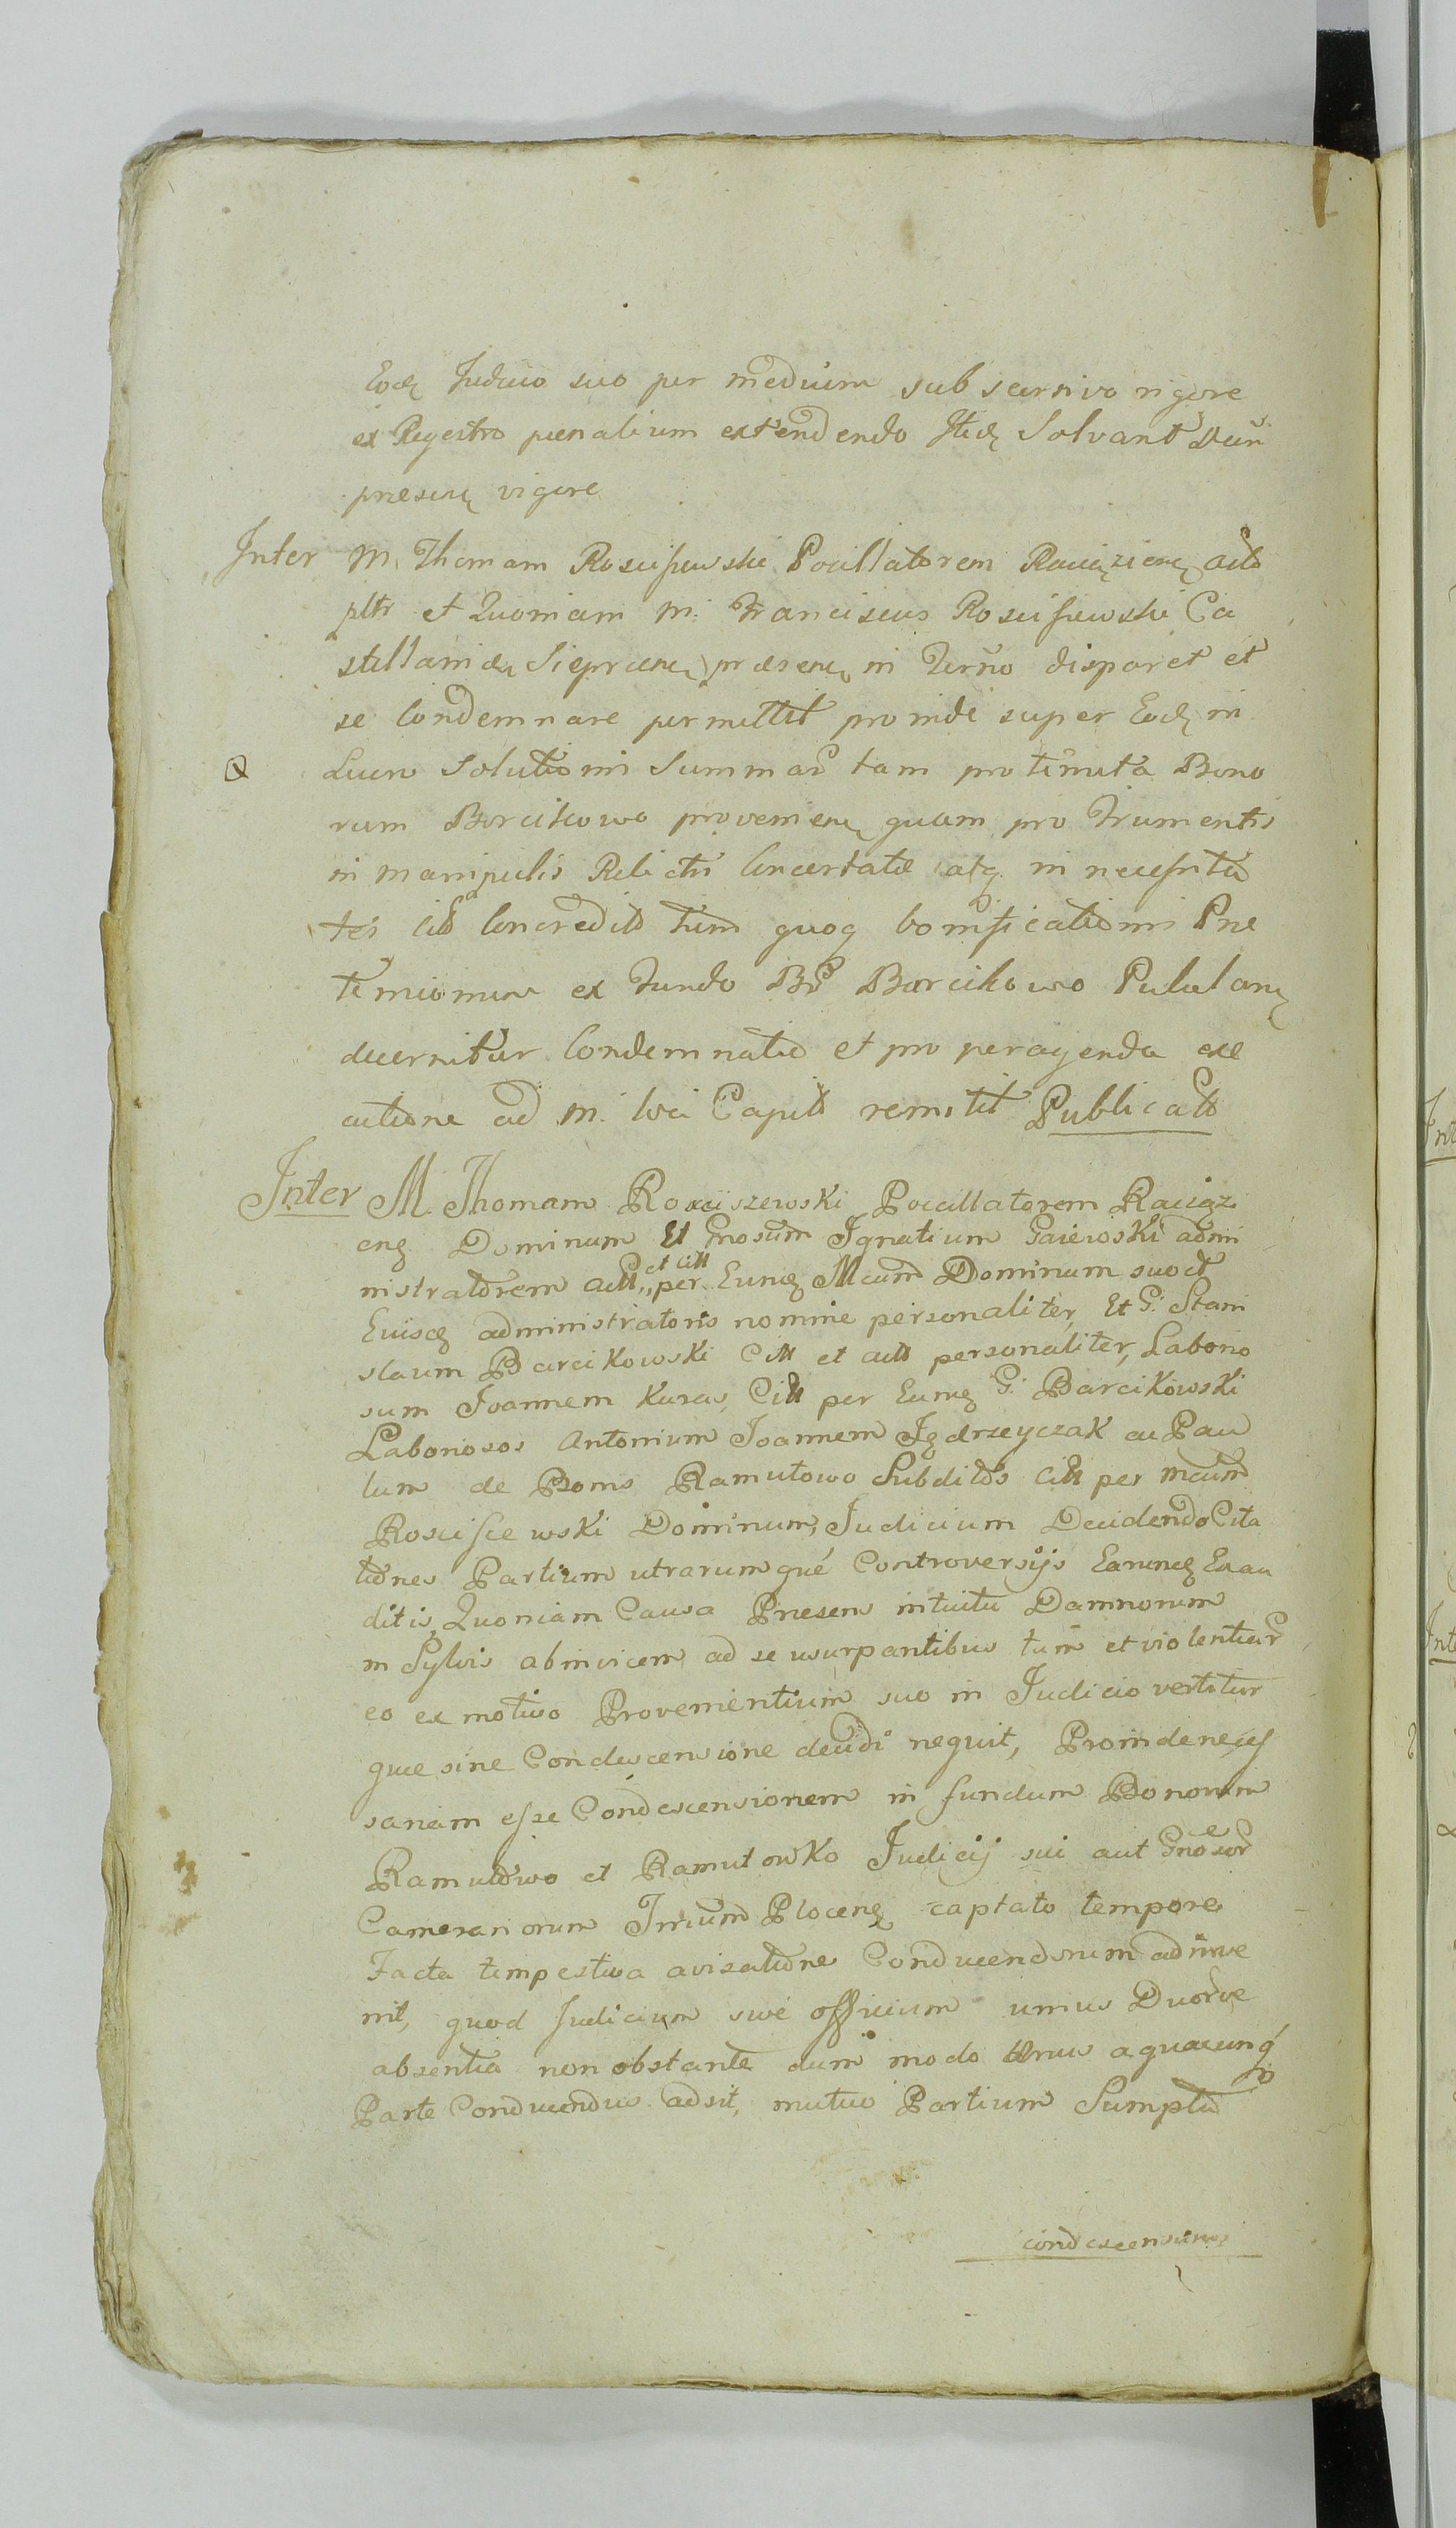 Eodq Judicio suo per medium sub serviro rigore
ex Regestro penalium extendendo Itidq Solvant Decri
presentq vigore
Inter M. Thomam Rosciſzewski Pocillatorem Raciązienq acto
pltr et Quoniam M: Franciscus Rosciſzewski Ca
stellanidq Sieprcenq presenq in Termo disparet et
se Condemnare permittit proinde super Eodq in
Lucro Solutionis Summar tam pro tenuta Bono
rum Borcikowo provenienq quam pro Frumentis
in manipulis Relictis Concertatae atq in neceſsita
tes Concredit tum quoq bonificationis Prae
tensionum ex Fundo Br Barcikowo Pululanq
decernitur Condemnatio et pro peragenda exe
cutione ad M. loci Capit remitit Publicato
Inter M. Thomam Rosciszewski Poccillatorem Raciąz
enq Dominum Et Gnosum Ignatium Gaiewski admi
nistratorem actt et citt per Eunq Mcum Dominum suo et
Euiscq administratoris nomine personaliter, Et G: Stani
slaum Barcikowski Citt et actt personaliter, Laborio
sum Joannem Kuras, Citt per Eunq G: Barcikowski
Laboriosos Antonium Joannem Jędrzeyczak ac Pau
lum de Bonis Ramutowo Subditos Citt per Mcum
Roscisce wski Dominum, Judicium Decidendo Cita
tiones Partium utrarumqué Controversijs Earunq Exau
ditis, Quoniam Causa Praesens intuitu Damnorum
in Sylvis abinvicem ad se usurpantibus tum et violentiar
eo ex motivo Provenientium suo in Judicio vertitur
quae sine Condescensione decidi nequit, Proinde neceſ
sariam eſse Condescensionem in fundum Bonorum
Ramutowo et Ramutowko Judicij sui aut Gnosor
Camerariorum Plocenq captato tempore
Facta tempestiva avisatione Conducendorum adinve
nit, quod Judicium sive officium unius Duorve
absentia non obstante dum modo Unus a quacunq
Parte Conducendus adsit, mutuo Partium Sumptu
condescensuros